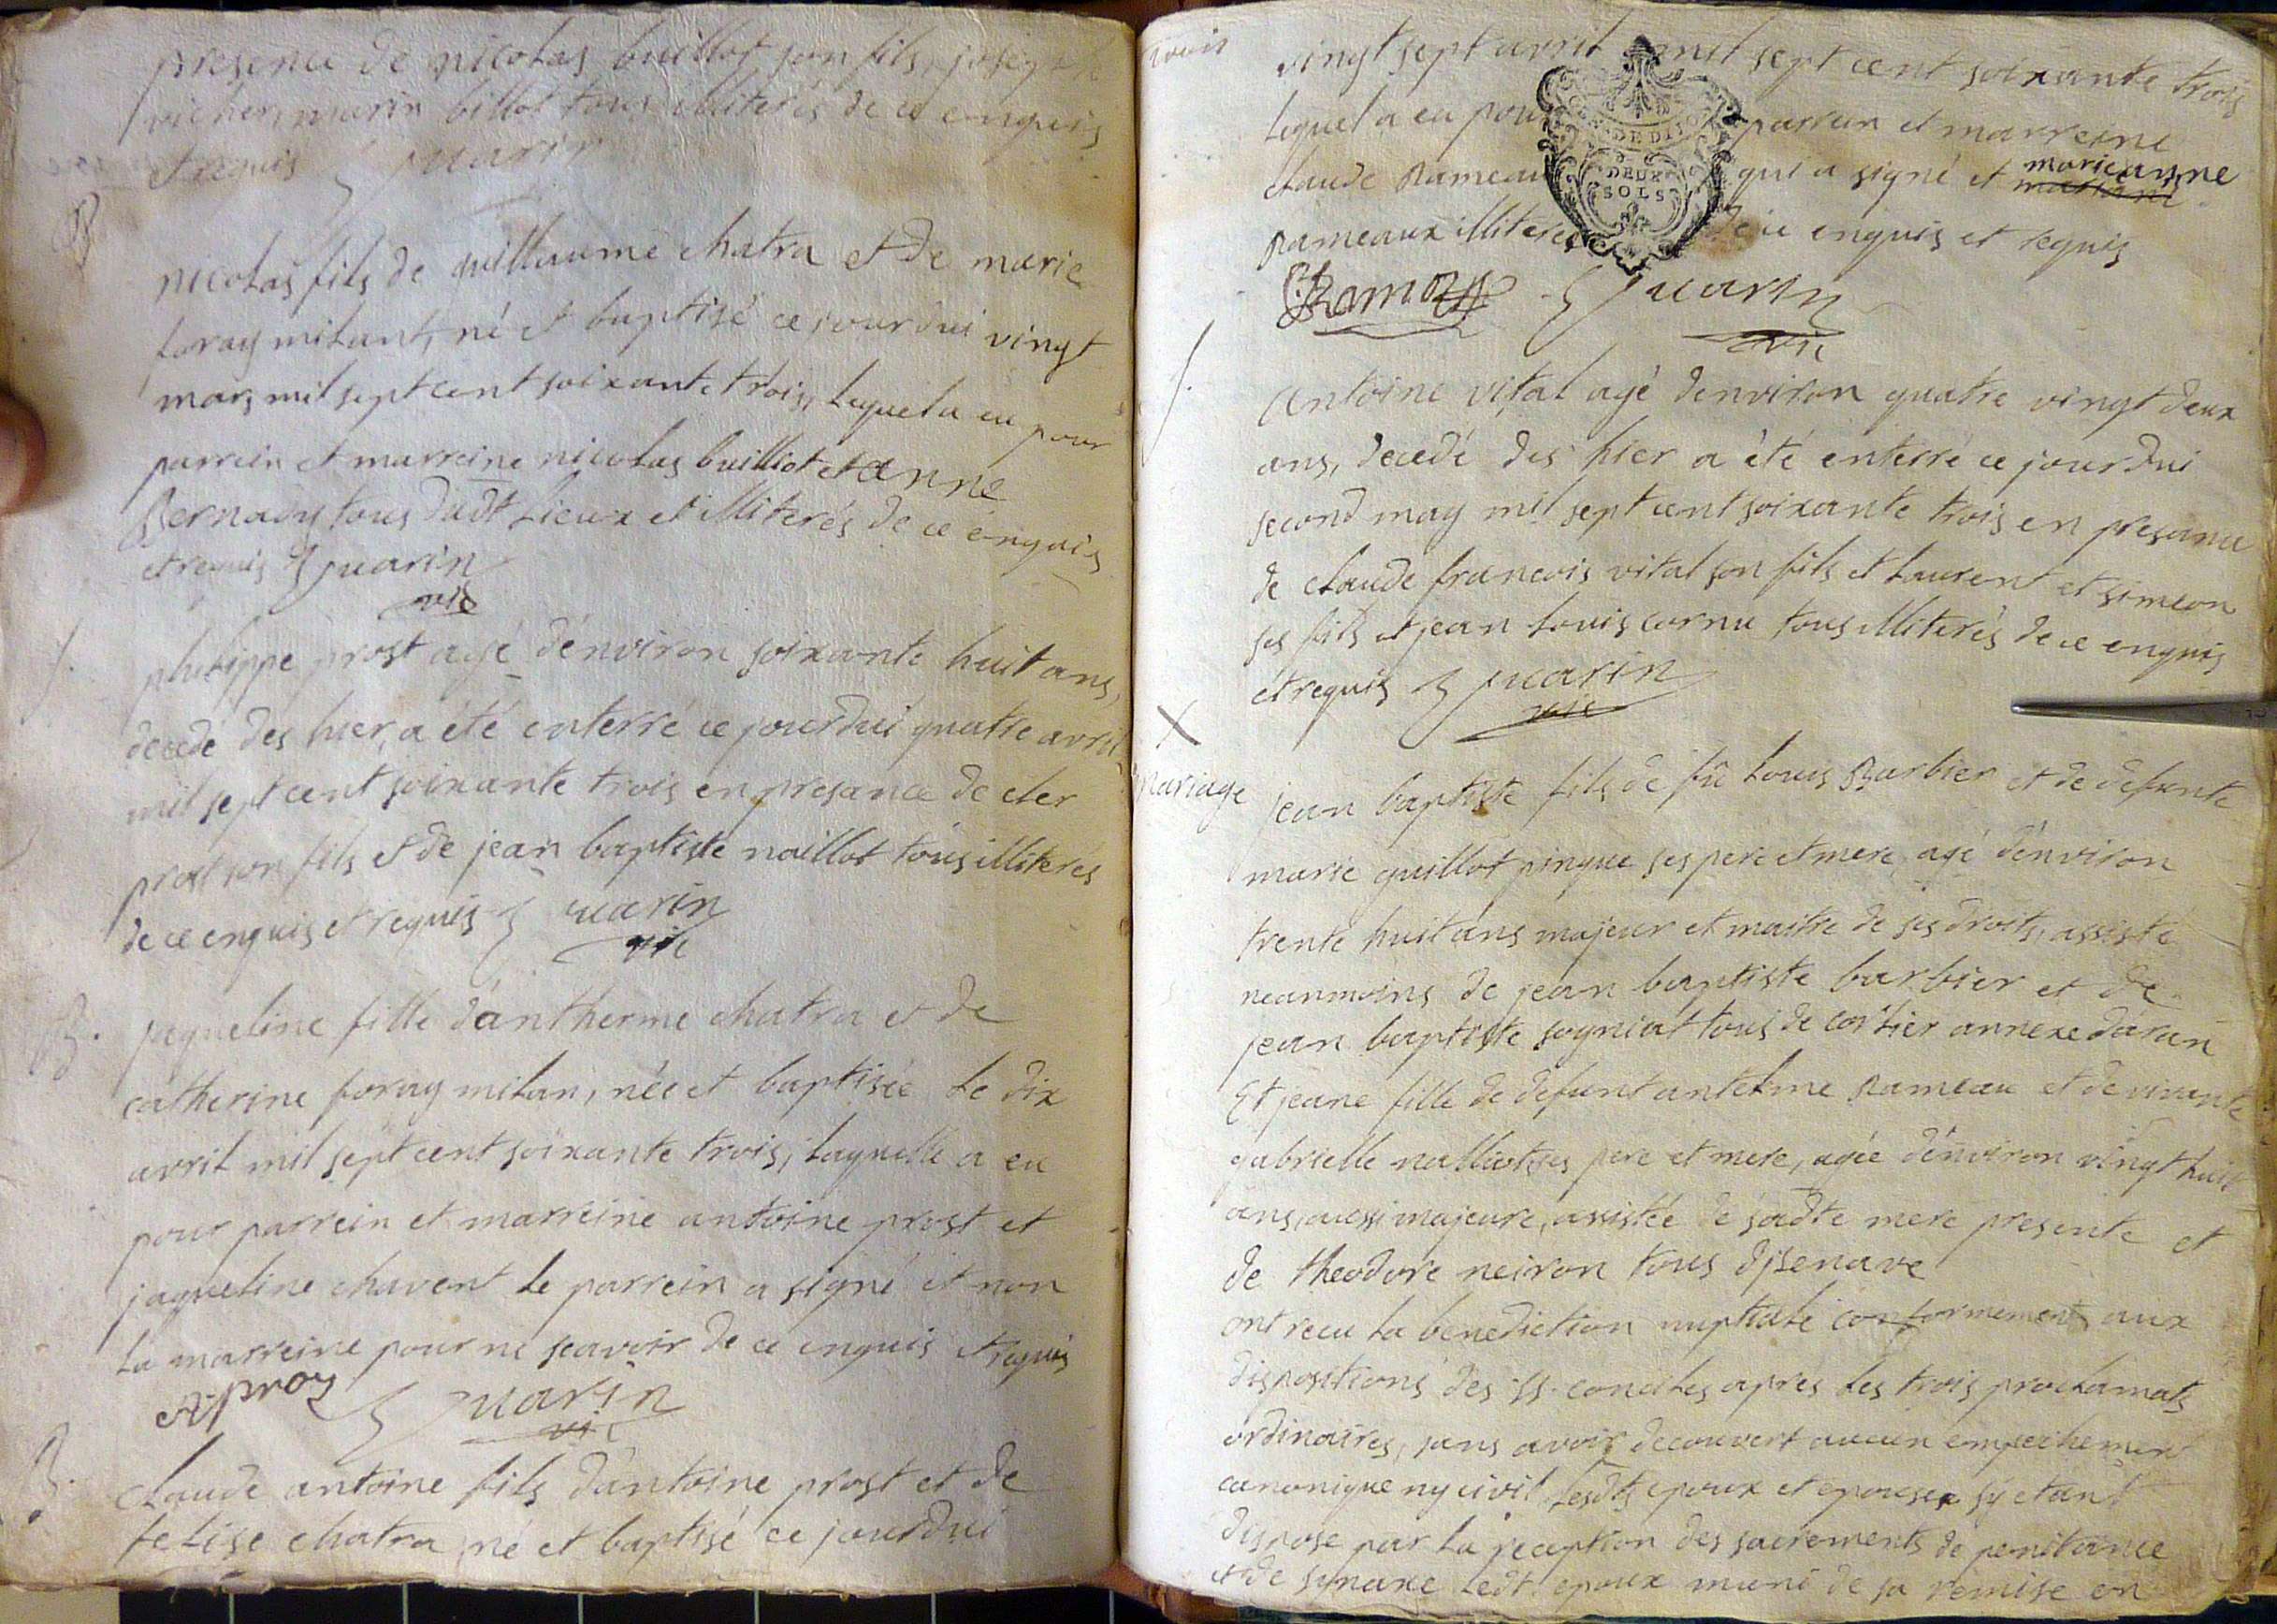 presence de nicolas buillot son fils, joseph
vicher, marin billot tous illiterés de ce enquis
et requis Juarin
B
nicolas fils de guillaume chatra et de marie
foray milant, né et baptisé ce jourdui vingt
mars mil sept cent soixante trois, lequel a eu pour
parrein et marreine nicolas buillot et anne
Bernady tous dudt lieux et illiterés de ce enquis
et requis Juarin
vic
philippe prost agé d'environ soixante huit ans,
decedé des hier, a été enterré ce jourdui quatre avril
mil sept cent soixante trois en presance de cler
prost son fils et de jean baptiste naillot tous illiterés
de ce enquis et requis Juarin
vic
B.
jaqueline fille d'antherme chatra et de
catherine foray milan, née et baptisée le dix
avril mil sept cent soixante trois, laquelle a eu
pour parrein et marreine antoine prost et
jaqueline chavent le parrein a signé et non
la marreine pour ne scavoir de ce enquis et requis
A-proy Juarin
vic
B.
claude antoine fils d'antoine prost et de
felise chatra, né et baptisé ce jourdui
vingt sept avril mil sept cent soixante trois
lequel a eu pour parrein et marreine
GEN. DE DIJON
DEUX
SOLS
claude Rameau qui a signé et marieanne
Rameaux illiterés de ce enquis et requis
Juarin
vic
Antoine vital agé d'environ quatre vingt deux
ans, decedé des hier a été enterré ce jourdui
second may mil sept cent soixante trois en presance
de claude francois vital son fils et laurent et simeon
ses fils et jean louis cornu tous illiterés de ce enquis
et requis Juarin
vic
X
Mariage
jean baptiste fils de fû louis Barbier et de defunte
marie guillot pingue ses pere et mere, agé d'environ
trente huit ans majeur et maitre de ses droits, assisté
neanmoins de jean baptiste barbier et de
jean baptiste sogniat tous de corlier annexe d'aran
Et jeane fille de defunt antelme Rameau et de vivante
gabrielle nalliot ses pere et mere, agée d'environ vingt huit
ans, aussi majeure, assistée de sadte mere presente et
de theodore neiron tous d'jsenave
ont recu la benediction nuptiale conformement aux
dispositions des SS. conciles apres les trois proclamats
ordinaires, sans avoir decouvert aucun empechement
canonique ny civil lesdts epoux et epouse sy etant
disposé par la reception des sacrements de penitance
et de sinaxe ledt. epoux muni de sa remise en